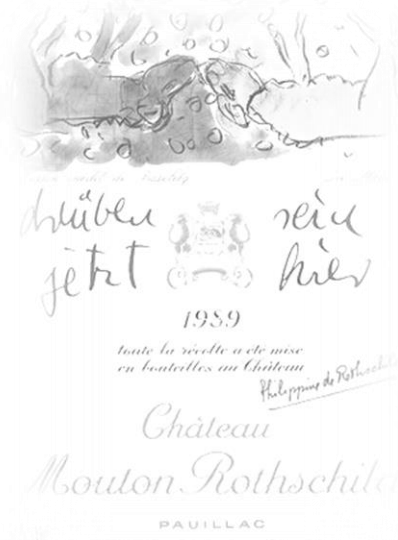 drüben sein
jetzt hier
1989
toute la récolte a été mise
en bouteilles au Château
Philippine de Rothschild
Château
Mouton Rothschild
PAUILLAC